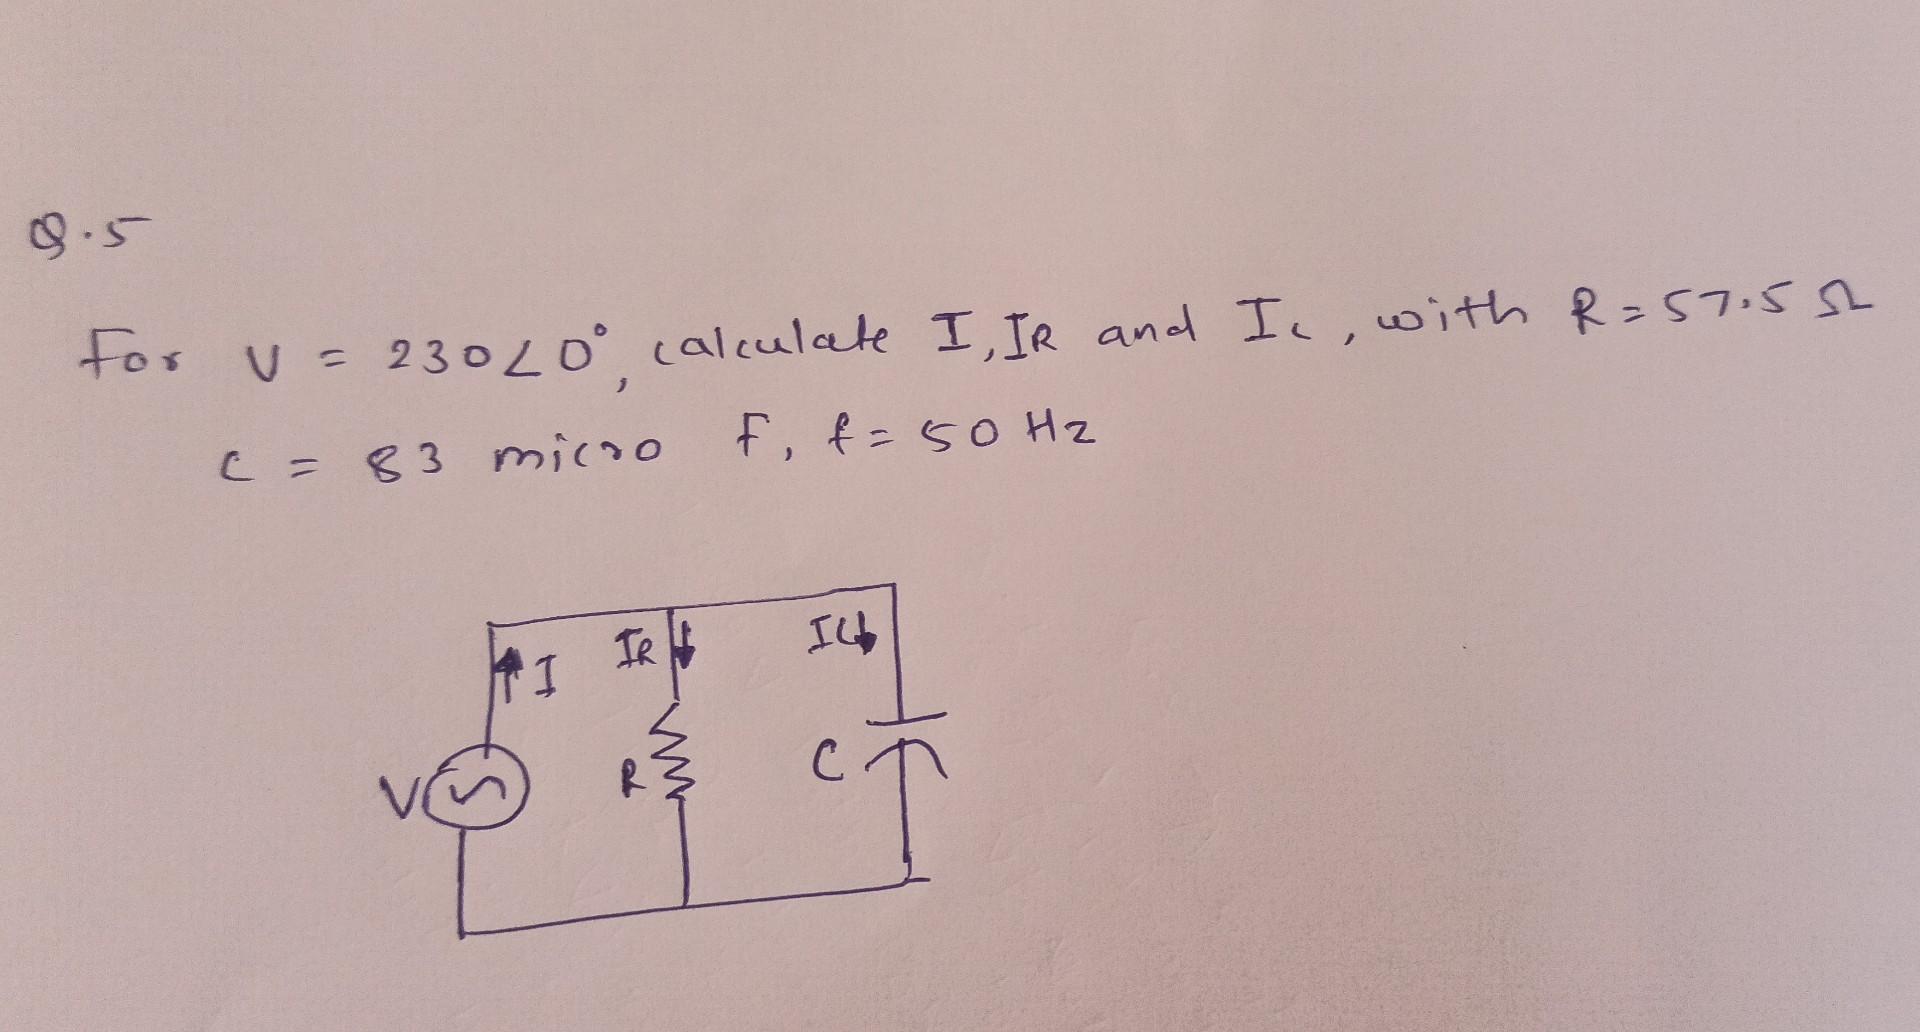 Q.5
For V = 230∠0°, calculate I, IR and Ic, with R = 57.5 Ω
C = 83 micro F, f = 50 Hz
I
IR
IC
V
R
C